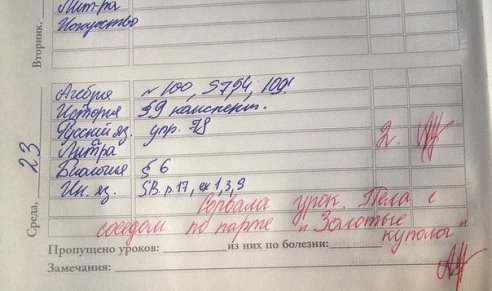 Вторник,
Лит-ра
Искусство
Среда, 23
Агебрия № 100, 101.
История §9 конспект.
Русский яз. упр. 78
Лит-ра 2.
Биология § 6
Ин. яз. SB. p 17, ex 1, 3, 9
Сорвала урок. Пела с
соседом по парте "Золотые
купола"
Пропущено уроков: из них по болезни:
Замечания: